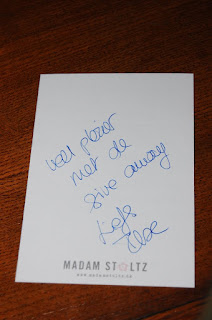 veel plezier
met de
give away
liefs
Ilse
MADAM STOLTZ
www.madamstoltz.dk